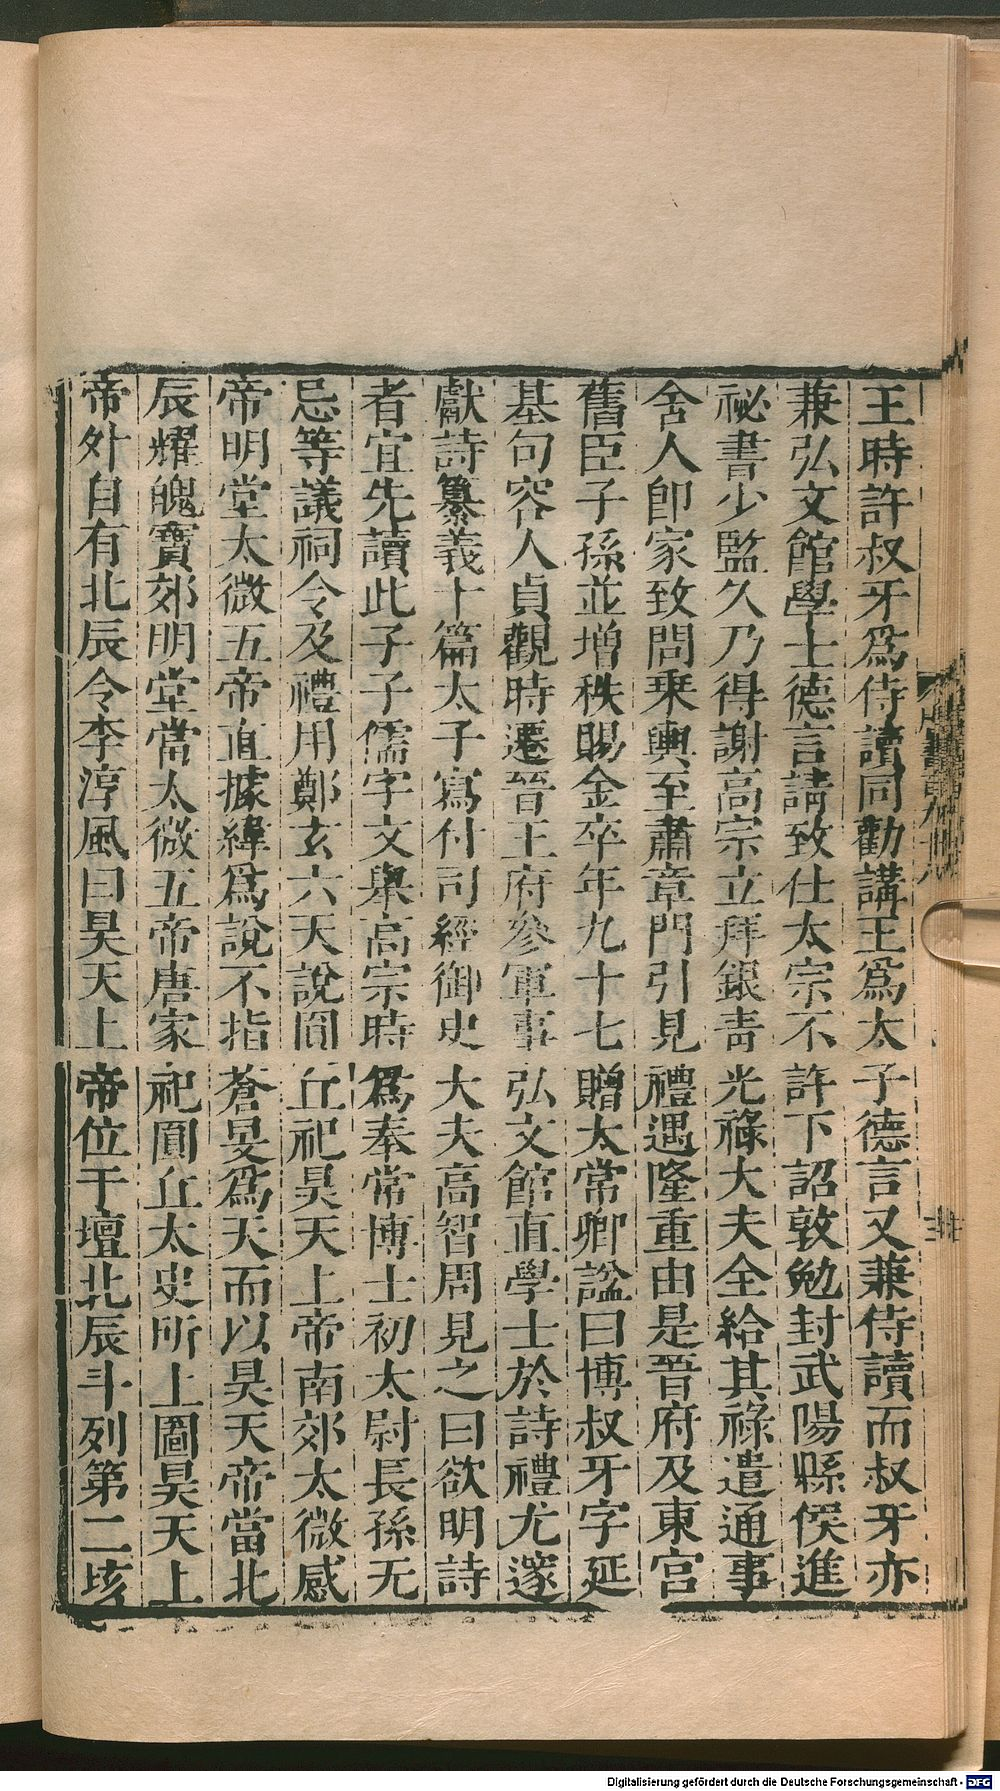 王時許叔牙爲侍讀同勸講王爲太子德言又兼侍讀而叔牙亦
兼弘文館學士德言請致仕太宗不許下詔敦勉封武陽縣侯進
祕書少監久乃得謝高宗立拜銀青光祿大夫全給其祿遣通事
舍人卽家致問乗輿至肅章門引見禮遇隆重由是晉府及東宮
舊臣子孫並增秩賜金卒年九十七贈太常卿諡曰博叔牙字延
基句容人貞觀時遷晉王府參軍事弘文館直學士於詩禮尤邃
獻詩纂義十篇太子寫付司經御史大夫高智周見之曰欲明詩
者宜先讀此子子儒字文舉高宗時爲奉常博士初太尉長孫无
忌等議祠令及禮用鄭玄六天說圓丘祀昊天上帝南郊太微感
帝明堂太微五帝直據緯爲說不指蒼旻爲天而以昊天帝當北
辰耀魄寶郊明堂當太微五帝唐家祀圓丘太史所上圖昊天上
帝外自有北辰令李淳風曰昊天上帝位于壇北辰斗列第二垓
Digitalisierung gefördert durch die Deutsche Forschungsgemeinschaft - DFG